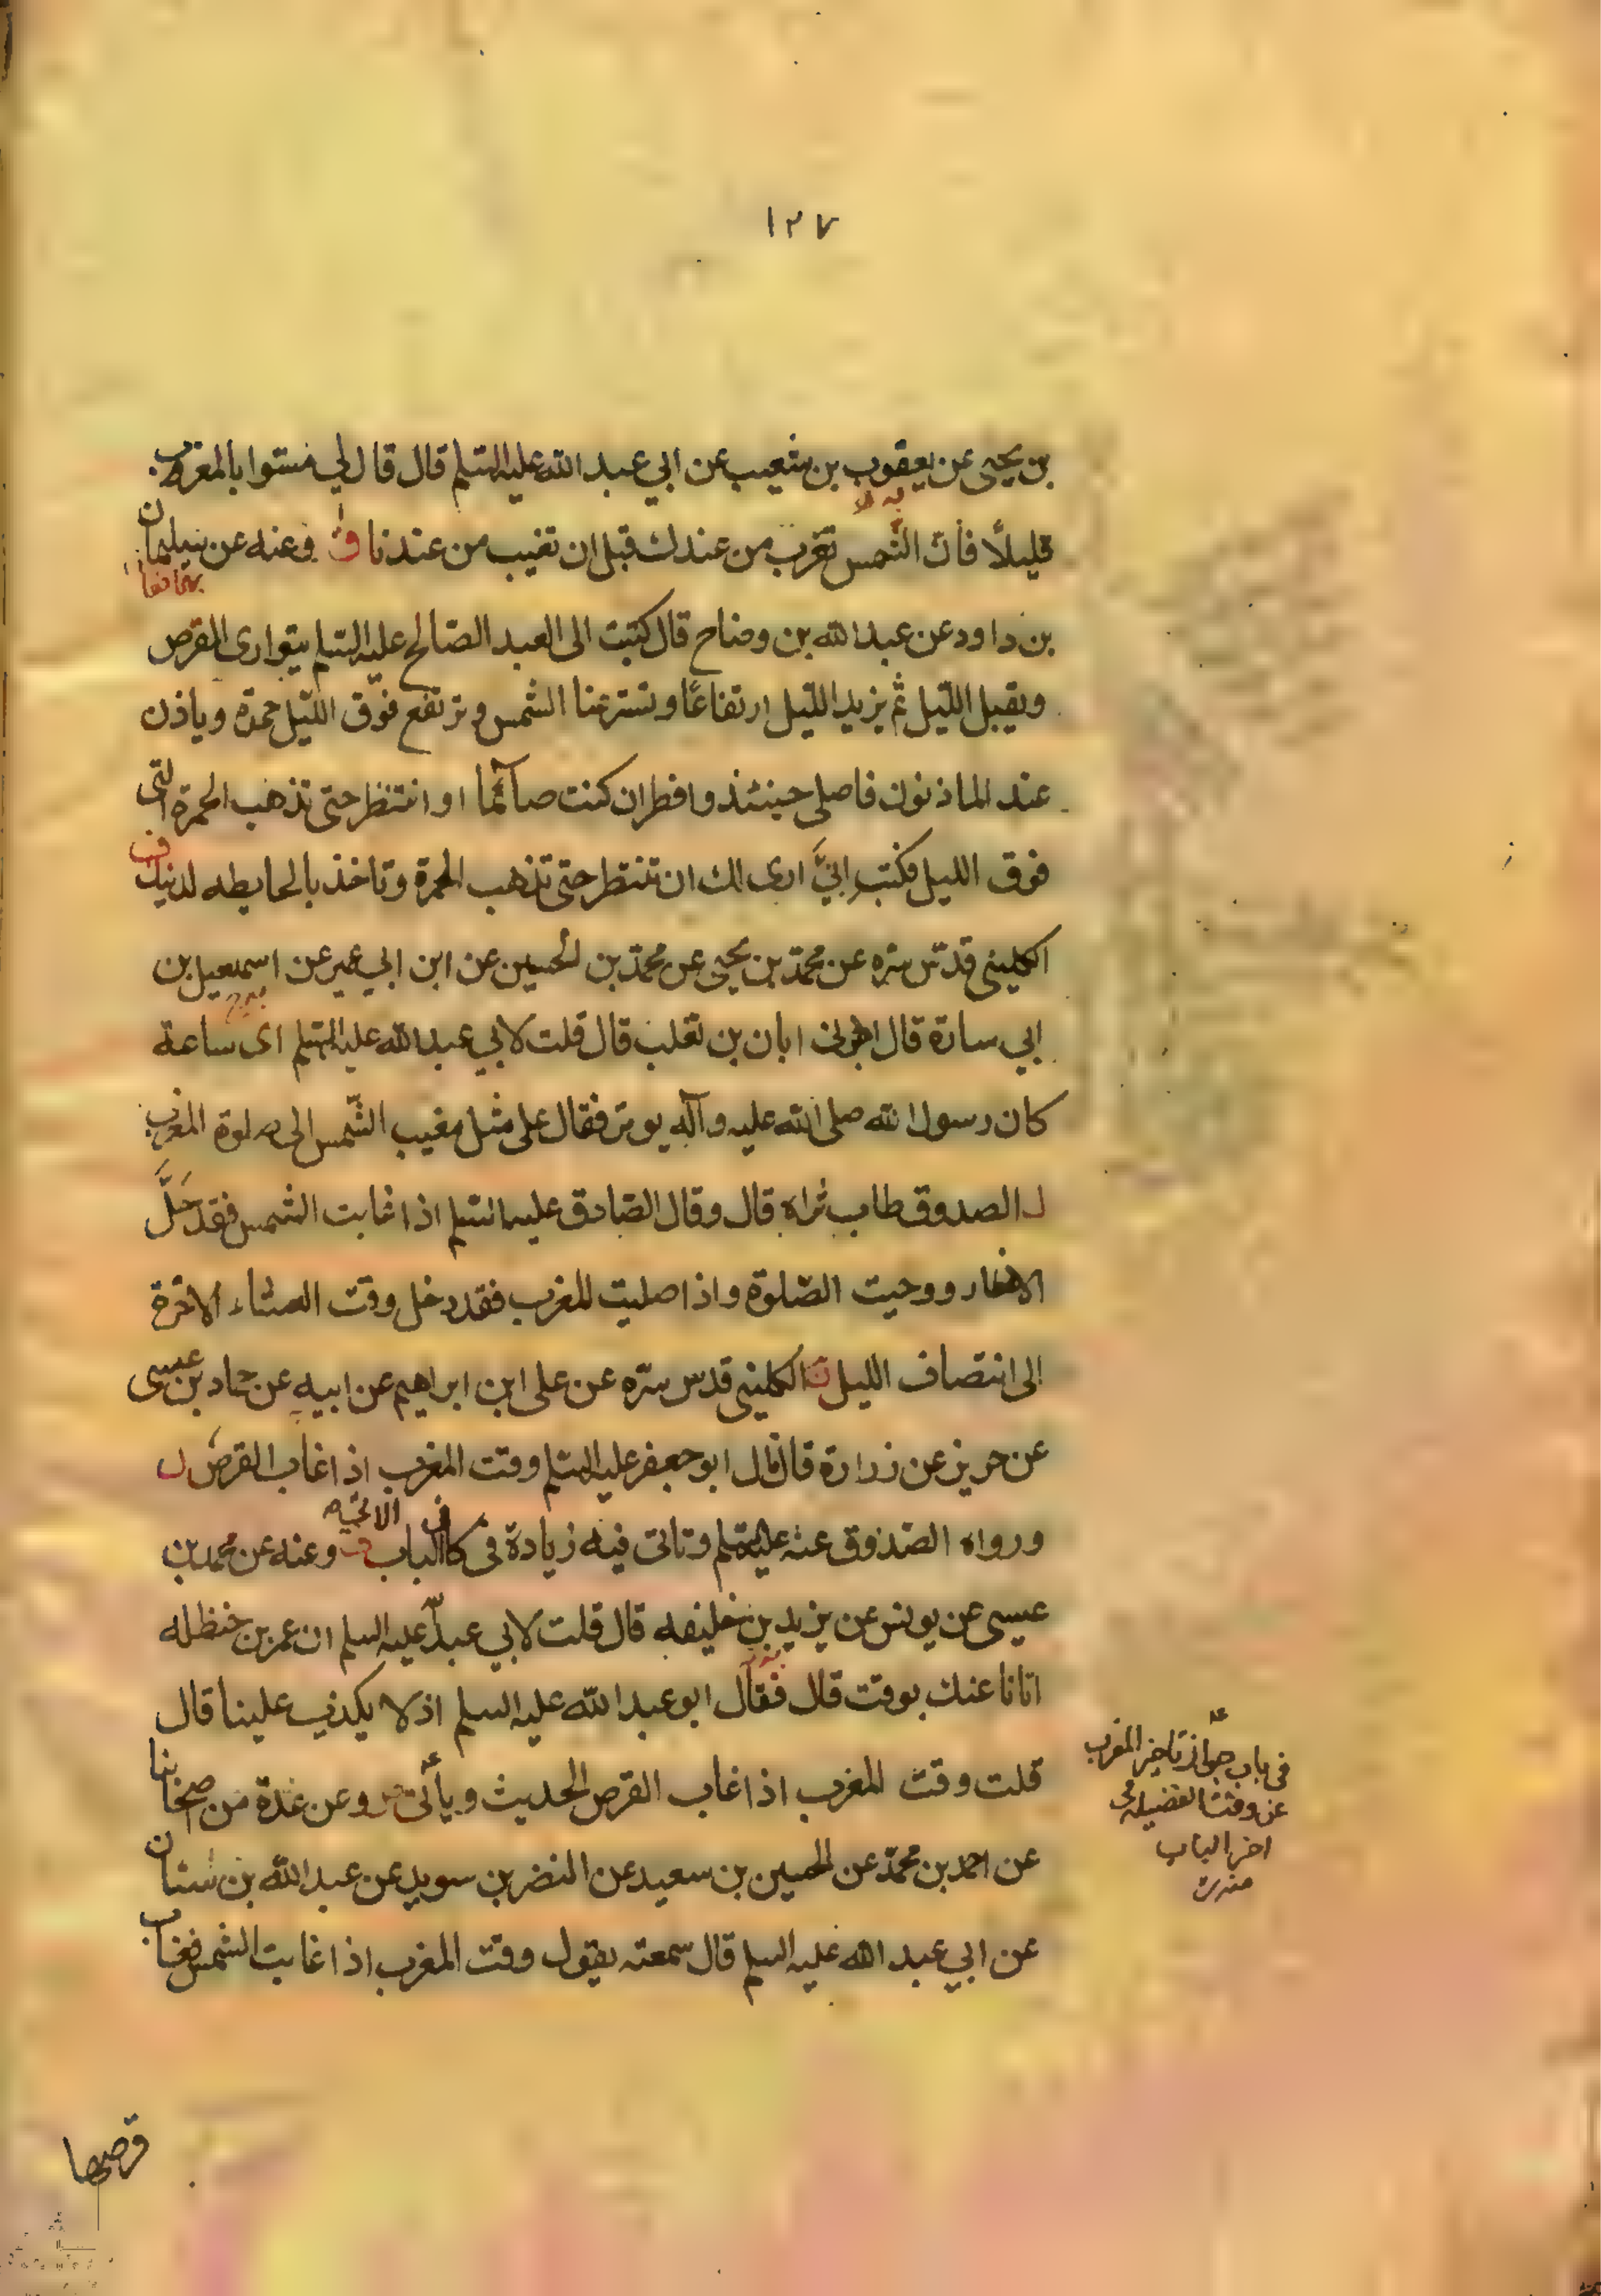 ١٢٧
بن يحيى عن يعقوب بن شعيب عن ابي عبد الله عليه السلم قال قال لي مسّوا بالمغرب
قليلاً فانّ الشّمس تغرب من عندك قبل ان تغيب من عندنا ق وعنه عن سليمان
بن داود عن عبد الله بن وضاح قال كتبت الى العبد الصّالح عليه السلم يتوارى القرص
ويقبل اللّيل ثم يزيد اللّيل ارتفاعًا وتستر عنا الشمس وترتفع فوق اللّيل حمرة وياذن
عند الماذنون فاصلي حينئذ وافطر ان كنت صآئما او انتظر حتى تذهب الحمرة التي
فوق الليل فكتب اليَّ ارى لك ان تنتظر حتى تذهب الحمرة وتاخذ بالحايطه لدينك
الكليني قدّس سره عن محمّد بن يحيى عن محمّد بن الحسين عن ابن ابي عمير عن اسمعيل بن
ابي سارة قال اخبرني ابان بن تغلب قال قلت لابي عبد الله عليه السلم اى ساعة
كان رسول الله صلى الله عليه وآله يوتر فقال على مثل مغيب الشّمس الى صلوة المغرب
الصدوق طاب ثراه قال وقال الصّادق عليه السلم اذا غابت الشمس فقد حَلَّ
الافطار ووجبت الصّلوة واذا صليت المغرب فقد دخل وقت العشاء الاخرة
الى انتصاف الليل الكليني قدس سرّه عن على ابن ابراهيم عن ابيه عن حماد بن عيسى
عن حريز عن زرارة قال قال ابو جعفر عليه السلم وقت المغرب اذا غاب القرص
ورواه الصّدوق عنه عليه السلم وتاتى فيه زيادة فى الباب وعنه عن محمد بن
عيسى عن يونس عن يزيد بن خليفه قال قلت لابي عبد الله عليه السلم ان عمر بن حنظله
اتانا عنك بوقت قال فقال ابو عبد الله عليه السلم اذ لا يكذب علينا قال
قلت وقت المغرب اذا غاب القرص الحديث ويأتى وعن عدة من اصحابنا
عن احمد بن محمّد عن الحسين بن سعيد عن النضر بن سويد عن عبد الله بن سنان
عن ابي عبد الله عليه السلم قال سمعته يقول وقت المغرب اذا غابت الشمس فغاب
فى باب جواز تاخير المغرب
عن وقت الفضيلة فى
اخر الباب
قرصها